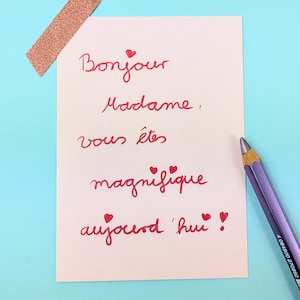 Bonjour
Madame,
vous êtes
magnifique
aujourd'hui !